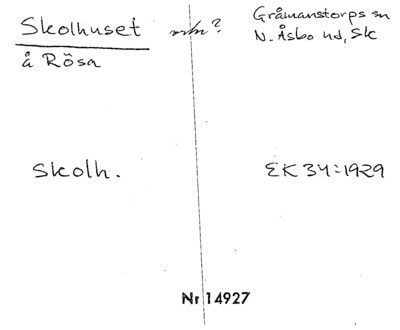 Skolhuset
å Rösa
Gråmanstorps sn
N. Åsbo hd, Sk
Skolh.
EK 34:1929
Nr 14927